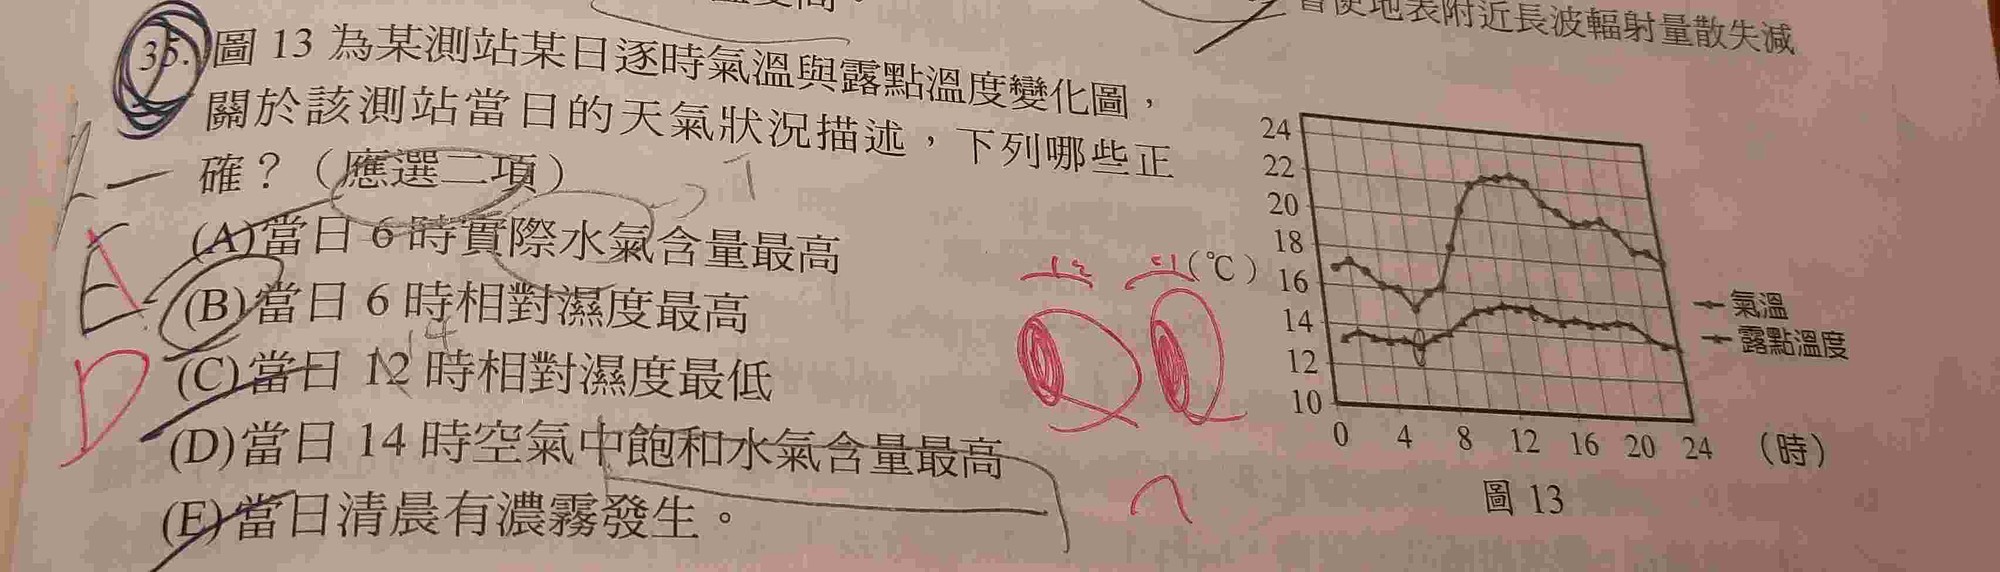 會使地表附近長波輻射量散失減
35.圖 13 為某測站某日逐時氣溫與露點溫度變化圖，
關於該測站當日的天氣狀況描述，下列哪些正
確？（應選二項）
(A)當日 6 時實際水氣含量最高
(B)當日 6 時相對濕度最高
(C)當日 12 時相對濕度最低
14
(D)當日 14 時空氣中飽和水氣含量最高
(E)當日清晨有濃霧發生。
D
(℃)
24
22
20
18
16
14
12
10
0 4 8 12 16 20 24 （時）
氣溫
露點溫度
圖 13